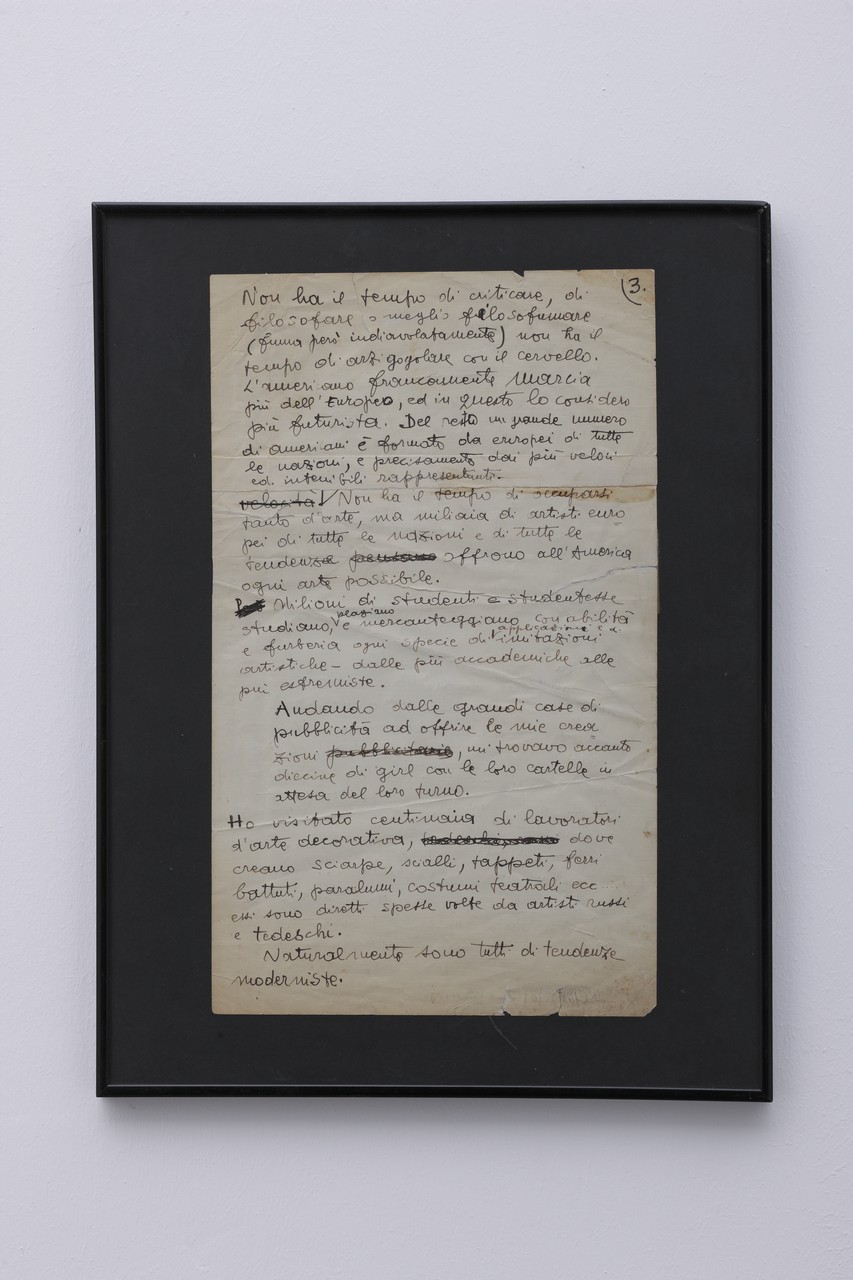 3.
Non ha il tempo di criticare, di
filosofare o meglio filosofumare
(fuma però indiavolatamente) non ha il
tempo di arzigogolare con il cervello.
L'americano francamente marcia
più dell'Europeo, ed in questo lo considero
più futurista. Del resto un grande numero
di americani è formato da europei di tutte
le nazioni, e precisamente dai più veloci
ed intenibili rappresentanti.
velocità Non ha il tempo di occuparsi
tanto d'arte, ma miliaia di artisti euro
pei di tutte le nazioni e di tutte le
tendenze offrono all'America
ogni arte possibile.
Milioni di studenti e studentesse
plagiano
studiano, e mercanteggiano con abilità
applicazioni e d'
e furberia ogni specie di imitazioni
artistiche - dalle più accademiche alle
più estremiste.
Andando dalle grandi case di
pubblicità ad offrire le mie crea
zioni pubblicitarie, mi trovavo accanto
diecine di girl con le loro cartelle in
attesa del loro turno.
Ho visitato centinaia di lavoratori
d'arte decorativa, dove
creano sciarpe, scialli, tappeti, ferri
battuti, paralumi, costumi teatrali ecc...
essi sono diretti spesse volte da artisti russi
e tedeschi.
Naturalmente sono tutti di tendenze
moderniste.